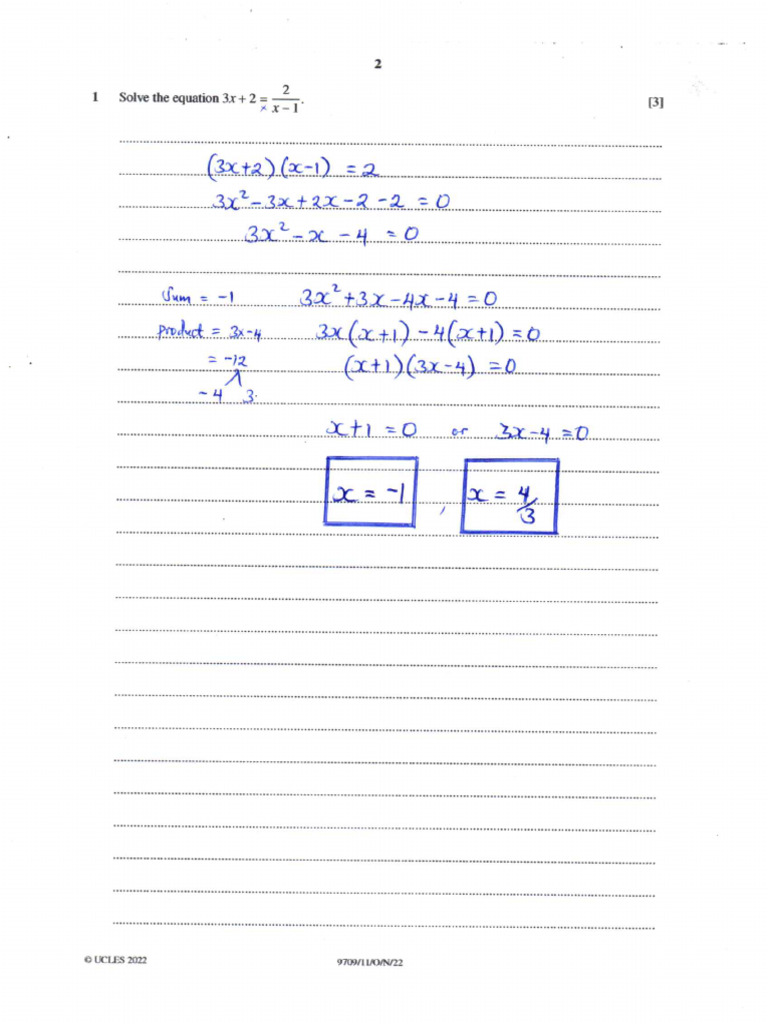 2
1 Solve the equation 3x + 2 = 2/(x − 1). [3]
×
(3x+2)(x-1) = 2
3x² - 3x + 2x - 2 - 2 = 0
3x² - x - 4 = 0
Sum = -1 3x² + 3x - 4x - 4 = 0
product = 3x-4 3x(x+1) - 4(x+1) = 0
= -12 (x+1)(3x-4) = 0
-4 3
x+1 = 0 or 3x-4 = 0
x = -1 , x = 4/3
© UCLES 2022 9709/11/O/N/22